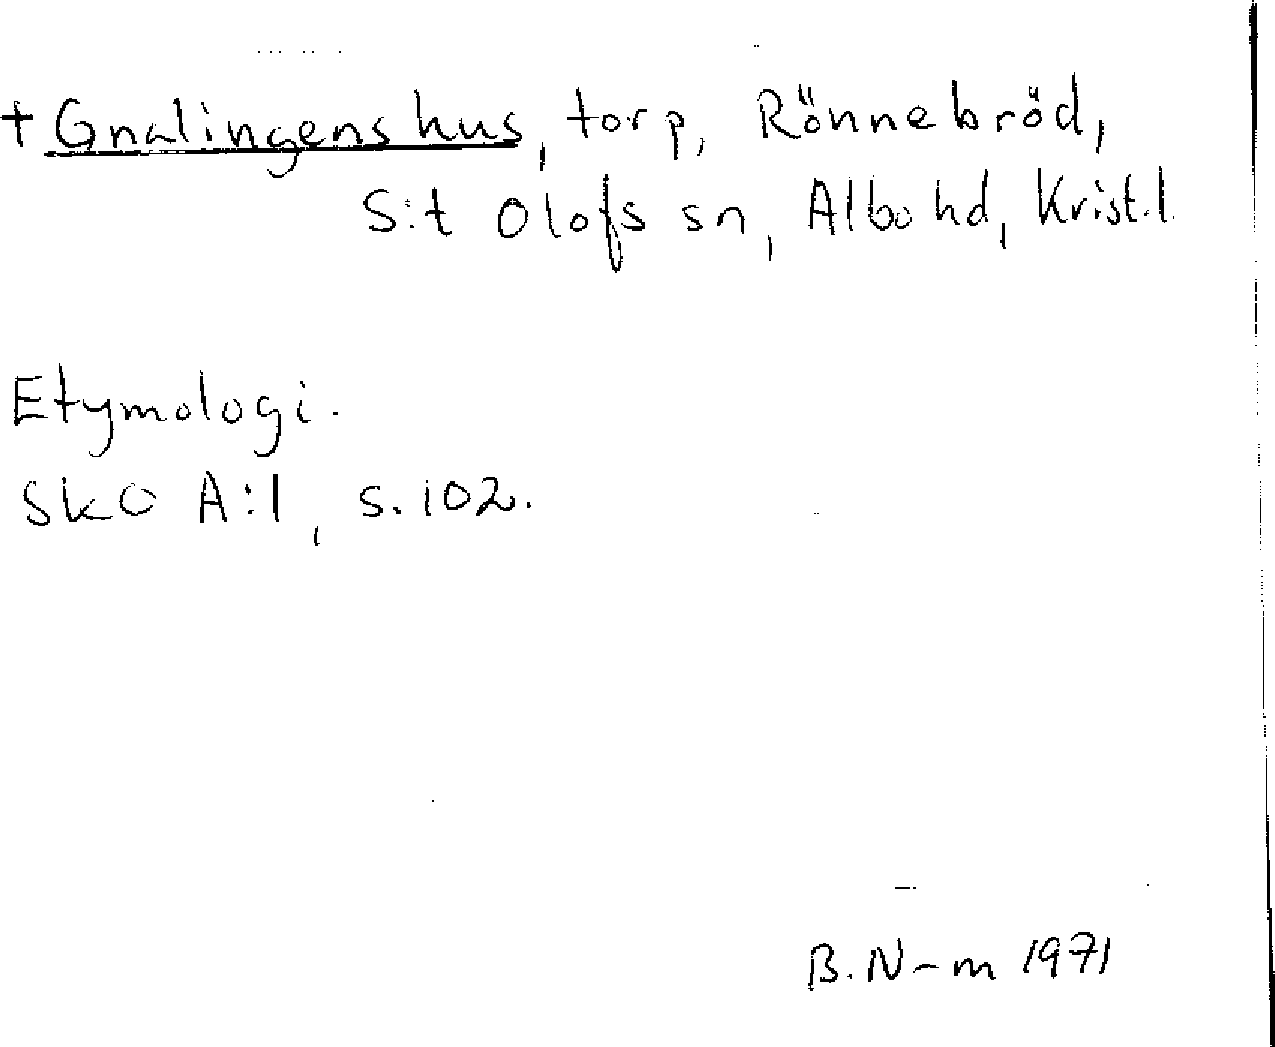 + Gnalingens hus, torp, Rönnebröd,
S:t Olofs sn, Albo hd, Krist.l.
Etymologi.
SkO A:1, s. 102.
B. N-m 1971